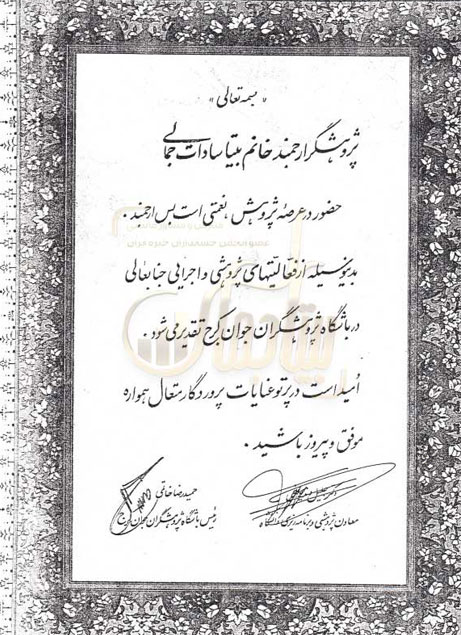 « بسمه تعالی »
پژوهشگر ارجمند خانم بیتا سادات جمالی
حضور در عرصه پژوهش، نعمتی است بس ارجمند .
بدینوسیله از فعالیتهای پژوهشی و اجرایی جنابعالی
در باشگاه پژوهشگران جوان کرج تقدیر می شود .
امید است در پرتو عنایات پروردگار متعال همواره
موفق و پیروز باشید .
حمیدرضا خاقی
رئیس باشگاه پژوهشگران جوان کرج
معاون پژوهشی و برنامه ریزی دانشگاه